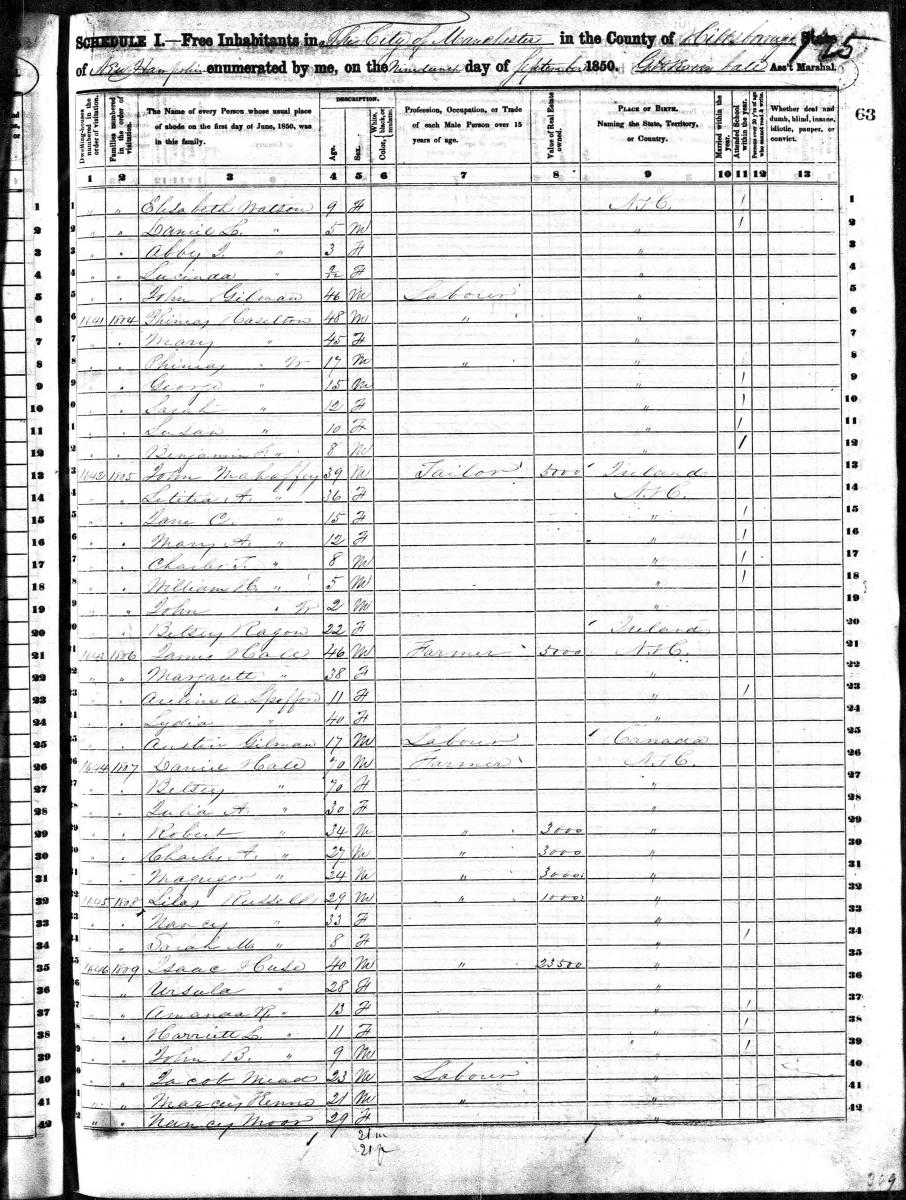 SCHEDULE I.—Free Inhabitants in The City of Manchester in the County of Hillsborough State
of New Hampshire enumerated by me, on the Nineteenth day of September 1850. Ass't Marshal.
63
Dwelling-houses numbered in the order of visitation.
Families numbered in the order of visitation.
The Name of every Person whose usual place of abode on the first day of June, 1850, was in this family.
DESCRIPTION.
Age.
Sex.
White, black, or mulatto.
Color,
Profession, Occupation, or Trade of each Male Person over 15 years of age.
Value of Real Estate owned.
PLACE OF BIRTH. Naming the State, Territory, or Country.
Married within the year.
Attended School within the year.
Persons over 20 y'rs of age who cannot read & write.
Whether deaf and dumb, blind, insane, idiotic, pauper, or convict.
1 2 3 4 5 6 7 8 9 10 11 12 13
1 " " Elisabeth Watson 9 F N.H. 1 1
2 " " Daniel L. " 5 M " 1 2
3 " " Abby " 3 F " 3
4 " " Lucinda " F " 4
5 " " John Gilman 46 M Labourer " 5
6 1641 1804 Phineas Haselton 48 M " " 6
7 " " Mary " 45 F " 7
8 " " Phineas " Jr 17 M " " 8
9 " " George " 15 M " 1 9
10 " " Sarah " 12 F " 1 10
11 " " Susan " 10 F " 1 11
12 " " Benjamin F. " 8 M " 1 12
13 1642 1805 John Mahaffey 39 M Tailor 5000 Ireland 13
14 " " Letitia A. " 36 F N.H. 14
15 " " Jane C. " 15 F " 1 15
16 " " Mary A. " 12 F " 1 16
17 " " Charles T. " 8 M " 1 17
18 " " William H. " 5 M " 1 18
19 " " John " Jr 2 M " 19
20 " " Betsey Ragon 22 F Ireland 20
21 1643 1806 James Hall 46 M Farmer 5000 N.H. 21
22 " " Margarett " 38 F " 22
23 " " A. Spofford 11 F " 1 23
24 " " Lydia " 40 F " 24
25 " " Austin Gilman 17 M Labourer Canada 25
26 1644 1807 Daniel Hall 70 M Farmer N.H. 26
27 " " Betsey " 70 F " 27
28 " " Julia A. " 30 F " 28
29 " " Robert " 34 M " 3000 " 29
30 " " Charles A. " 27 M " 3000 " 30
31 " " " 24 M " 3000 " 31
32 1645 1808 Silas Russell 29 M " 1000 " 32
33 " " Nancy " 33 F " 33
34 " " Sarah M. " 8 F " 1 34
35 1646 1809 Isaac Huse 40 M " 23500 " 35
36 " " Ursula " 28 F " 36
37 " " Amanda " 13 F " 1 37
38 " " Harriett L. " 11 F " 1 38
39 " " John B. " 9 M " 1 39
40 " " Jacob Mead 23 M Labourer " 40
41 " " Marcus 21 M " " 41
42 " " Nancy Moor 29 F " 42
21 m
21 f